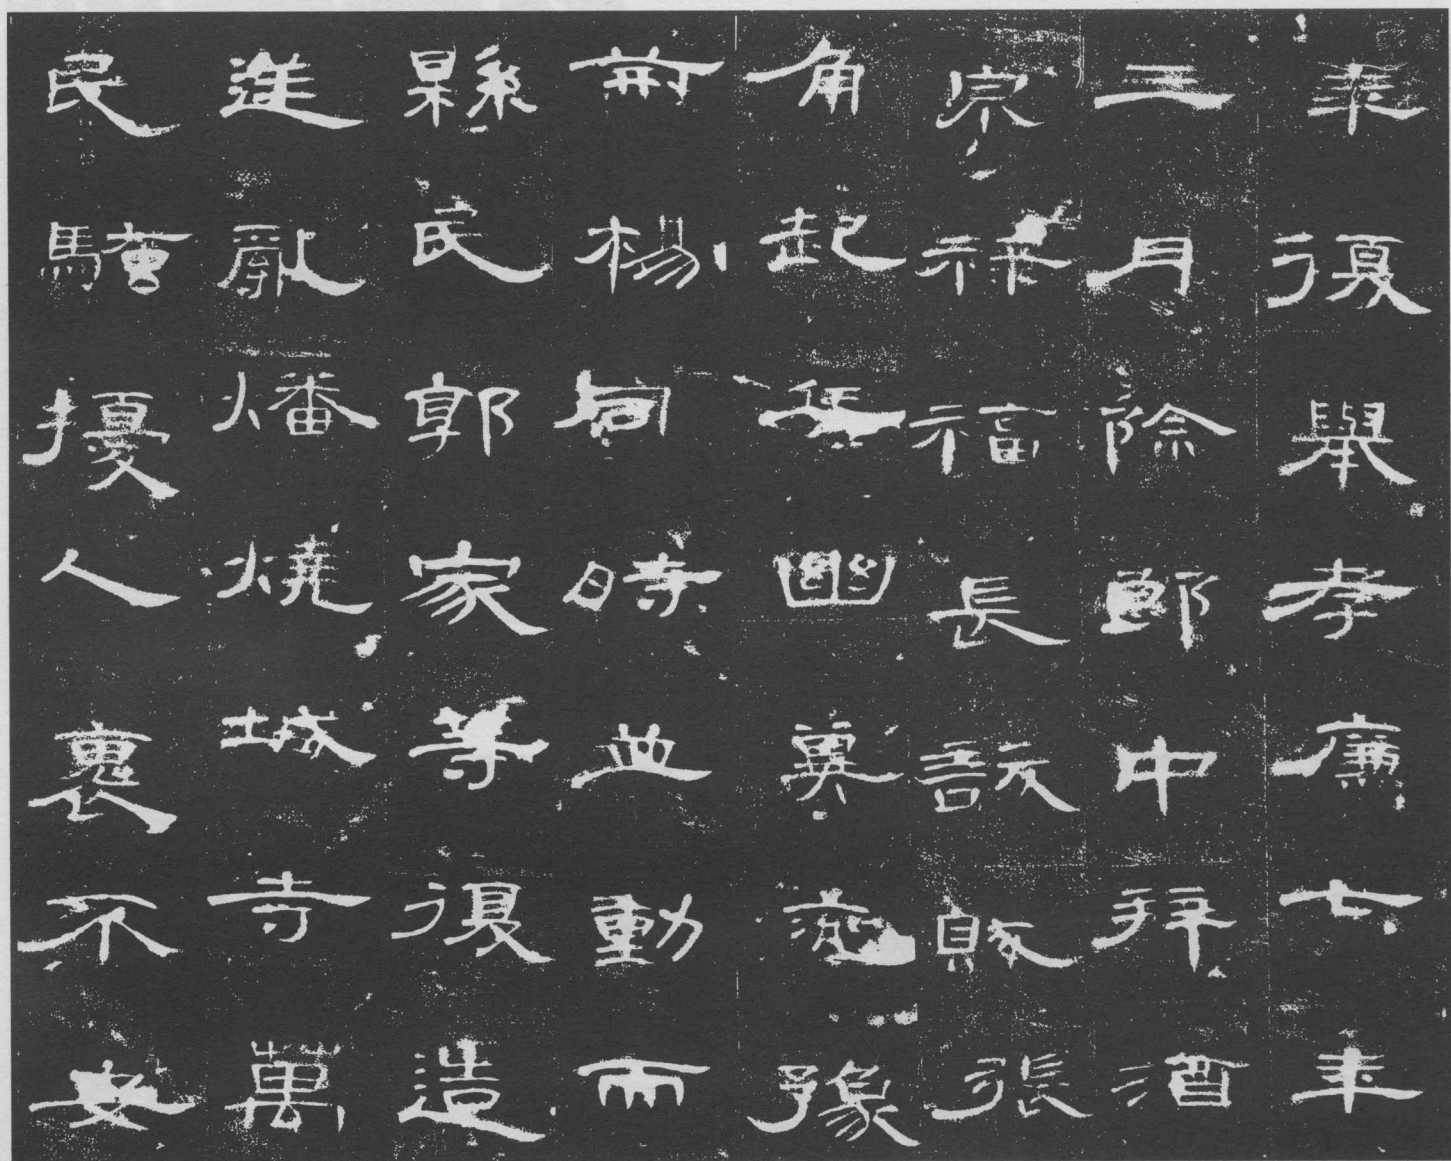 年復舉孝廉七年
三月除郎中拜酒
泉祿福長訞賊張
角起兵幽冀兗豫
荊楊同時並動而
縣民郭家等復造
逆亂燔燒城寺萬
民騷擾人裹不安